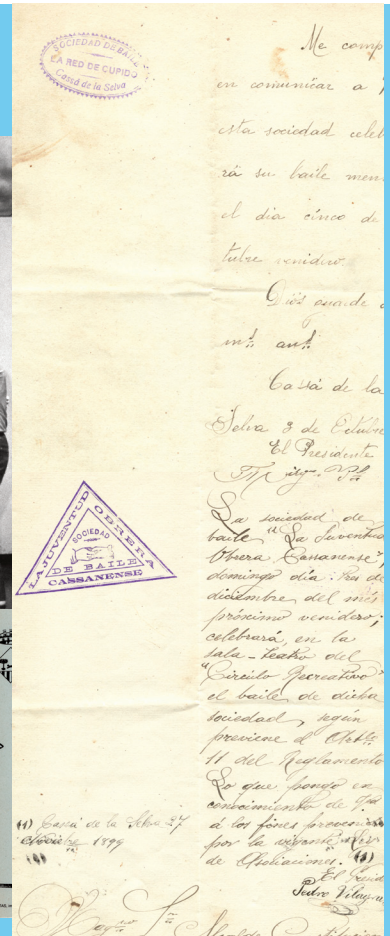 SOCIEDAD DE BAILE
LA RED DE CUPIDO
Cassá de la Selva
Me comp
en comunicar a
esta sociedad celeb
rá su baile men
el dia cinco de
tubre venidero.
Dios guarde
m.s an.s
Cassá de la
Selva 3 de Octubre
El Presidente
LA JUVENTUD OBRERA
SOCIEDAD
DE BAILE
CASSANENSE
La sociedad de
baile "La Juventud
Obrera Cassanense",
domingo día: tres de
diciembre del mes
próximo venidero;
celebrará, en la
sala-teatro del
"Circulo Recreativo"
el baile de dicha
sociedad, según
previene el
11 del Reglamento
Lo que pongo en
conocimiento de
á los fines
por la vigente
de Asociaciones. (1)
(1) Cassá de la Selva 27
1899
(1)
El
Pedro
Alcalde